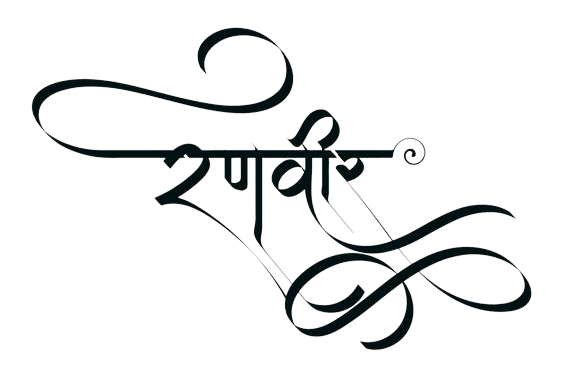 रणवीर